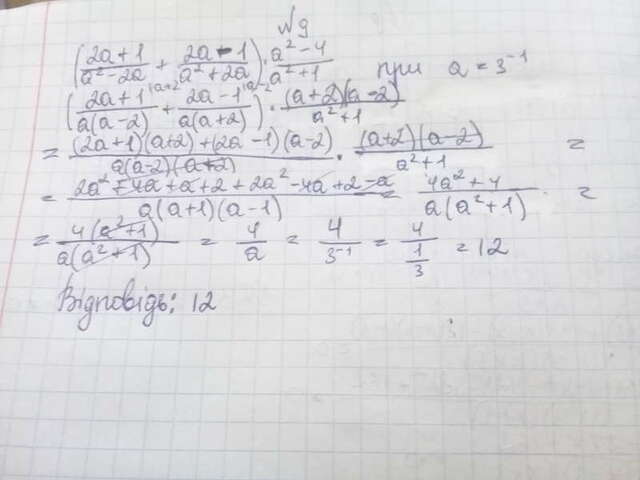 №9
(2a+1/a²-2a + 2a-1/a²+2a) · a²-4/a²+1 при a=3⁻¹
(2a+1|a+2/a(a-2) + 2a-1|a-2/a(a+2)) · (a+2)(a-2)/a²+1
= (2a+1)(a+2)+(2a-1)(a-2)/a(a-2)(a+2) · (a+2)(a-2)/a²+1 =
= 2a²+4a+a+2+2a²-4a+2-a/a(a+1)(a-1) = 4a²+4/a(a²+1) =
= 4(a²+1)/a(a²+1) = 4/a = 4/3⁻¹ = 4/1/3 = 12
Відповідь: 12